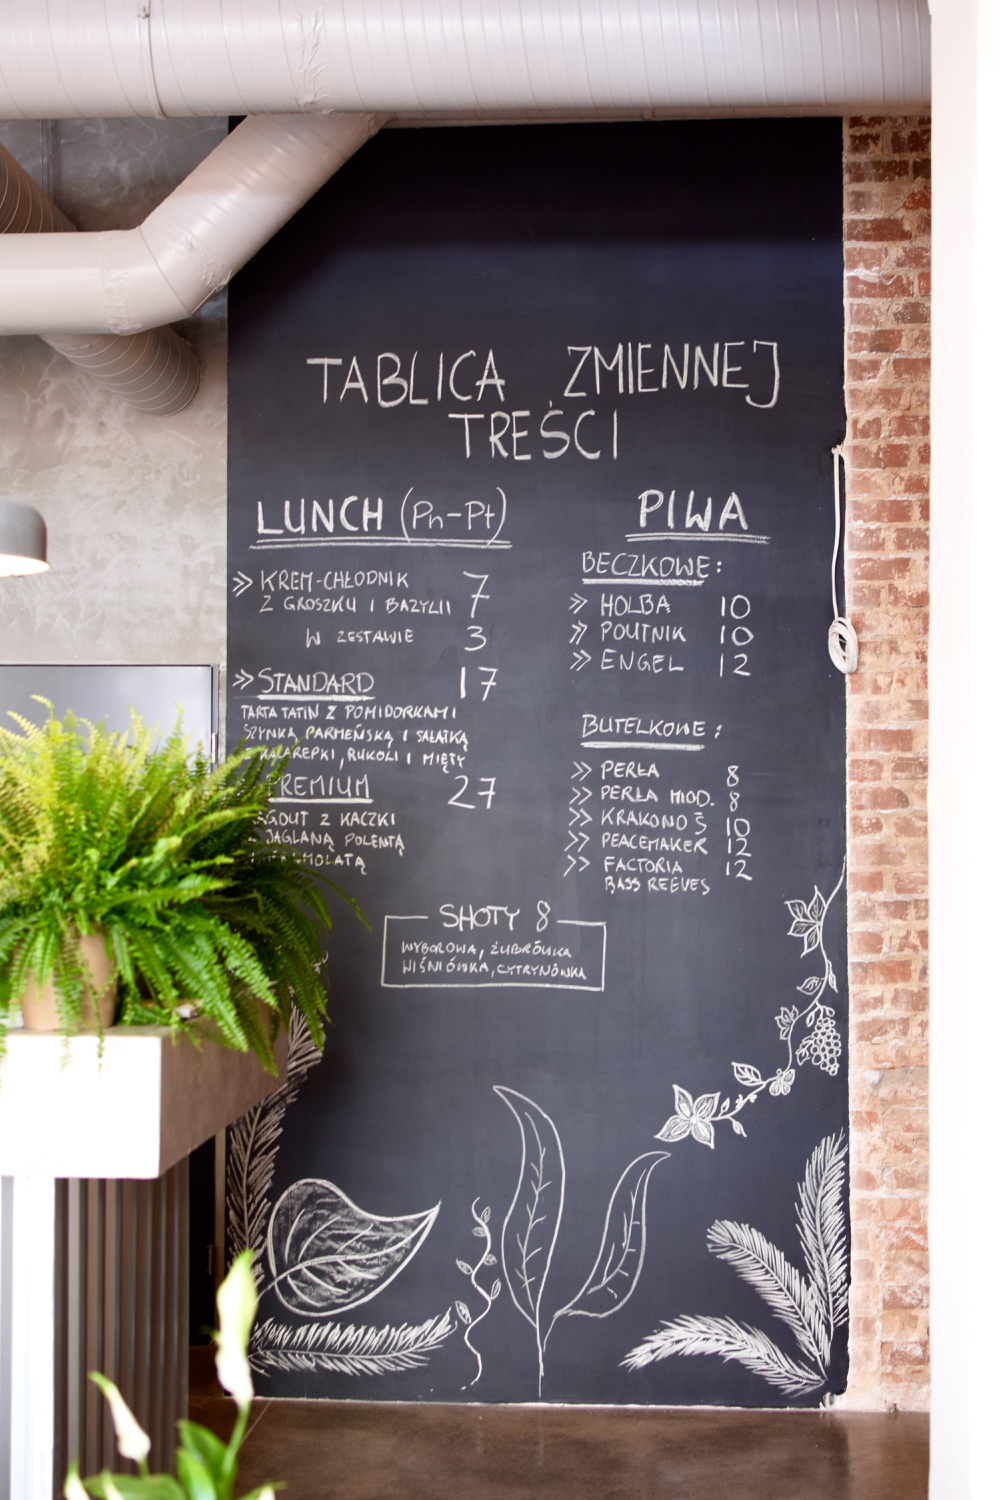 TABLICA ZMIENNEJ
TREŚCI
LUNCH (Pn-Pt)
>> KREM-CHŁODNIK 7
Z GROSZKU I BAZYLII
W ZESTAWIE 3
>> STANDARD 17
TARTA TATIN Z POMIDORKAMI
SZYNKĄ PARMEŃSKĄ I SAŁATKĄ
KALAREPKI, RUKOLI I MIĘTY
PREMIUM 27
Z KACZKI
JAGLANĄ POLENTĄ
PIWA
BECZKOWE:
>> HOLBA 10
>> POUTNIK 10
>> ENGEL 12
BUTELKOWE:
>> PERŁA 8
>> PERŁA MIOD. 8
>> KRAKONOŠ 10
>> PEACEMAKER 12
>> FACTORIA 12
BASS REEVES
SHOTY 8
WYBOROWA, ŻUBRÓWKA
WIŚNIÓWKA, CYTRYNÓWKA